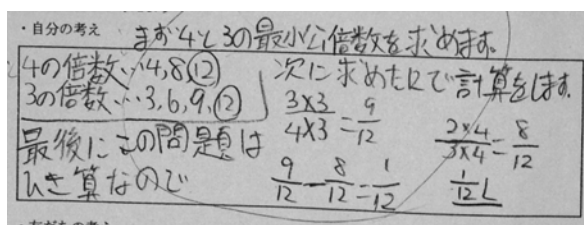 ・自分の考え
まず4と3の最小公倍数を求めます。
4の倍数…4,8,12
3の倍数…3,6,9,12
次に求めた12で計算をします。
3×3/4×3=9/12
2×4/3×4=8/12
最後にこの問題は
ひき算なので
9/12-8/12=1/12
1/12L